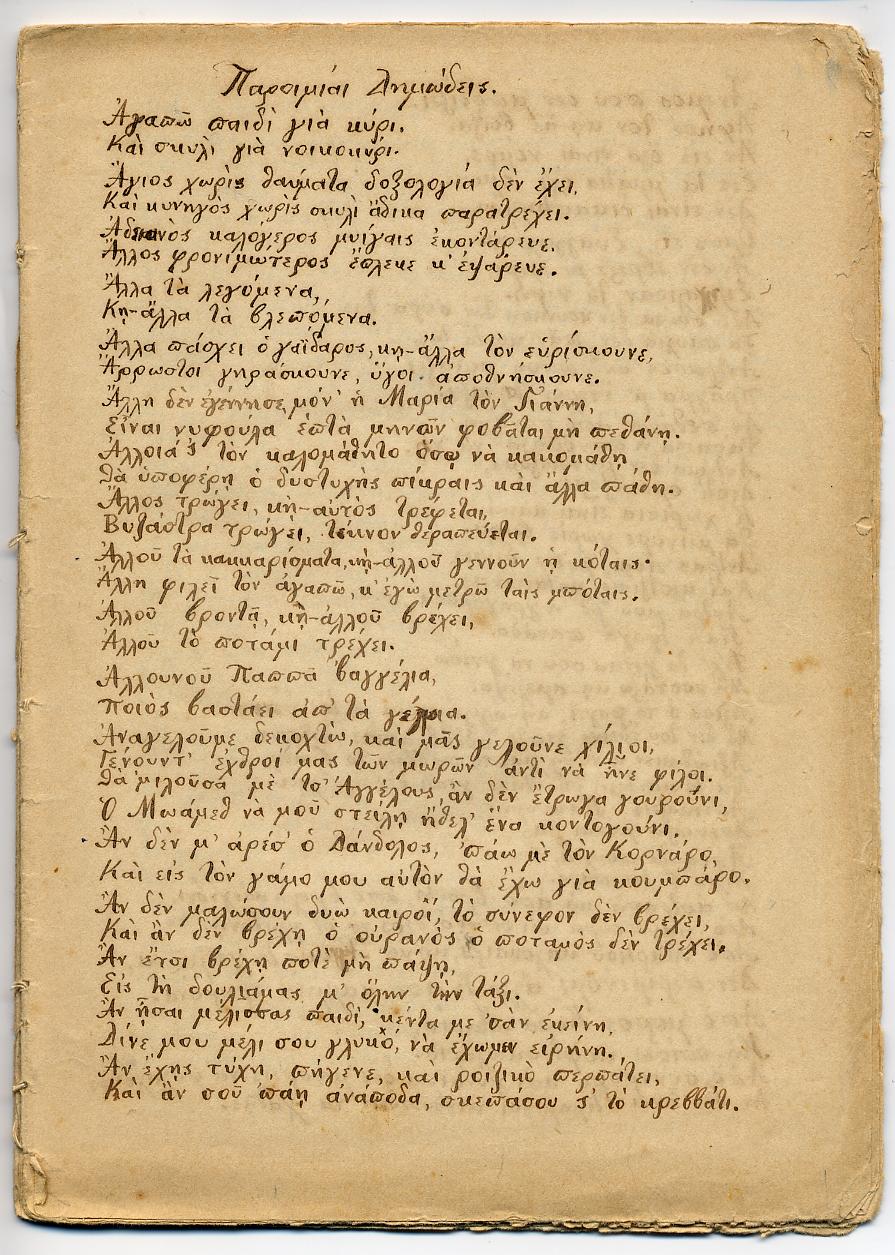 Παροιμίαι Δημώδεις.
Ἀγαπῶ παιδὶ γιὰ κύρι,
Καὶ σκυλὶ γιὰ νοικοκύρι.
Ἅγιος χωρὶς θαύματα δοξολογία δὲν ἔχει,
Καὶ κυνηγὸς χωρὶς σκυλὶ ἄδικα παρατρέχει.
Ἀδειανὸς καλόγερος μυίγαις ἐκοντάρευε,
Ἄλλος φρονιμώτερος ἔπλεκε κ' ἐψάρευε.
Ἄλλα τὰ λεγόμενα,
Κῃ-ἄλλα τὰ βλεπόμενα.
Ἄλλα πάσχει ὁ γαΐδαρος, κῃ-ἄλλα τὸν εὑρίσκουνε,
Ἄρρωστοι γηράσκουνε, ὕγοι ἀποθνήσκουνε.
Ἄλλη δὲν ἐγέννησε, μόν' ἡ Μαρία τὸν Γιάννη,
Εἶναι νυφούλα ἑπτὰ μηνῶν φοβᾶται μὴ πεθάνῃ.
Ἀλλοιά 'ς τὸν καλομάθητο ὅσῳ νὰ κακομάθῃ
Θὰ ὑποφέρῃ ὁ δυστυχὴς πίκραις καὶ ἄλλα πάθη.
Ἄλλος τρώγει, κῃ-αὐτὸς τρέφεται,
Βυζάστρα τρώγει, τέκνον θεραπεύεται.
Ἀλλοῦ τὰ κακκαρίσματα, κῃ-ἀλλοῦ γεννοῦν ᾑ κόταις·
Ἄλλη φιλεῖ τὸν ἀγαπῶ, κ' ἐγὼ μετρῶ ταὶς μπόταις.
Ἀλλοῦ βροντᾷ, κῃ-ἀλλοῦ βρέχει,
Ἀλλοῦ τὸ ποτάμι τρέχει.
Ἀλλουνοῦ Παππᾶ βαγγέλια,
Ποιὸς βαστάει ἀπ' τὰ γέλια.
Ἀναγελοῦμε δεκοχτὼ, καὶ μᾶς γελοῦνε χίλιοι,
Γένουντ' ἐχθροί μας τῶν μωρῶν ἀντὶ νὰ ἦνε φίλοι.
Θὰ 'μιλοῦσα μὲ τσ' Ἀγγέλους, ἂν δὲν ἔτρωγα γουροῦνι,
Ὁ Μωάμεθ νὰ μοῦ στείλῃ ἤθελ' ἕνα κοντογοῦνι.
Ἂν δὲν μ' ἀρέσ' ὁ Δάνδολος, 'πάω μὲ τὸν Κορνάρο,
Καὶ εἰς τὸν γάμο μου αὐτὸν θὰ ἔχω γιὰ κουμπάρο.
Ἂν δὲν μαλώσουν δυὼ καιροὶ, τὸ σύνεφον δὲν βρέχει,
Καὶ ἂν δὲν βρέχῃ ὁ οὐρανὸς ὁ ποταμὸς δὲν τρέχει.
Ἂν ἔτσι βρέχῃ ποτὲ μὴ πάψῃ,
Εἰς τὴ δουλιάμας μ' ὅλην τὴν τάξι.
Ἂν ἦσαι μέλισσας παιδὶ, κέντα με 'σὰν ἐκείνη,
Δίνε μου μέλι σου γλυκὸ, νὰ ἔχωμεν εἰρήνη.
Ἂν ἔχῃς τύχη, πήγενε, καὶ ροιζικὸ περπάτει,
Καὶ ἂν σοῦ 'πάῃ ἀνάποδα, σκεπάσου 'ς τὸ κρεββάτι.